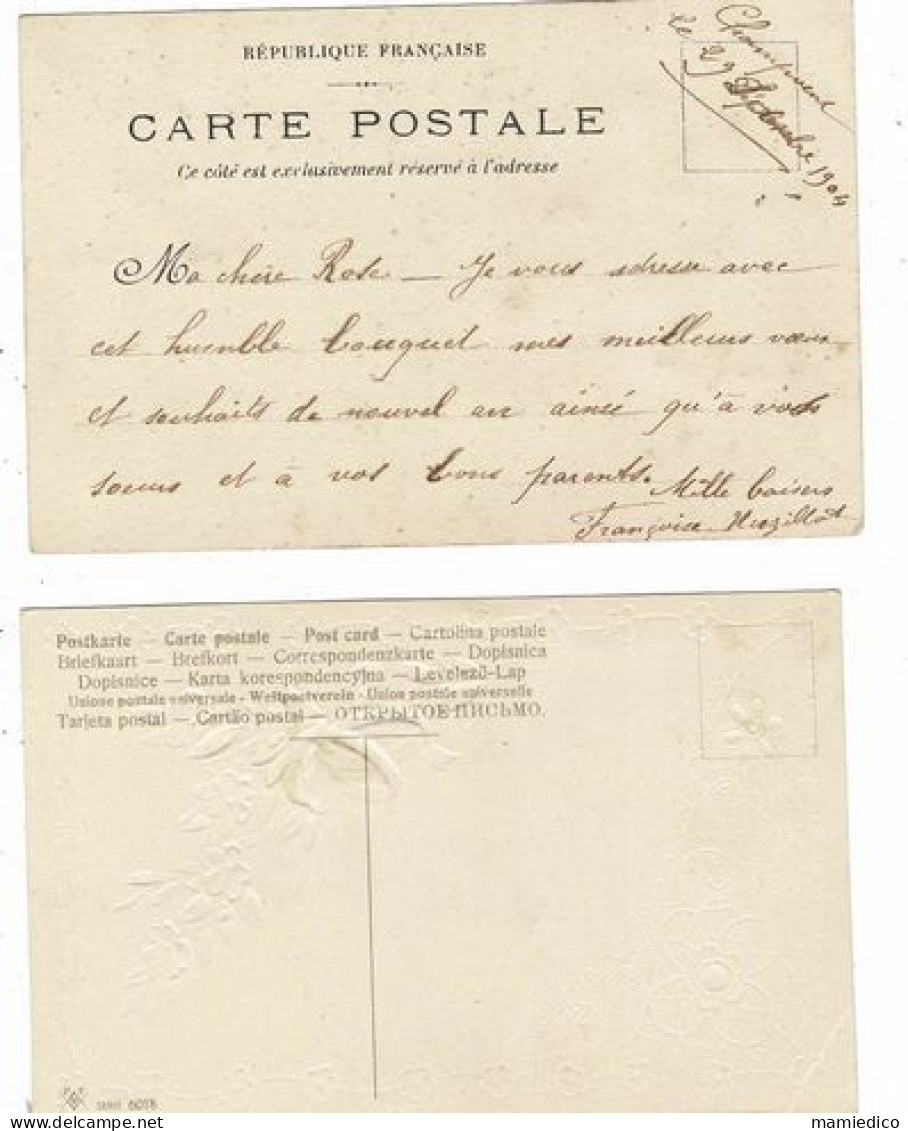 RÉPUBLIQUE FRANÇAISE
CARTE POSTALE
Ce côté est exclusivement réservé à l'adresse
le 29 1904
Ma chère Rose — Je vous adresse avec
cet humble bouquet mes meilleurs vœux
et souhaits de nouvel an ainsi qu'à vos
soeurs et à vos bons parents.
Mille baisers
Françoise
Postkarte — Carte postale — Post card — Cartolina postale
Briefkaart — Brefkort — Correspondenzkarte — Dopisnica
Dopisnice — Karta korespondencyjna — Levelező-Lap
Unione postale universale - Weltpostverein - Union postale universelle
Tarjeta postal — Cartão postal — ОТКРЫТОЕ ПИСЬМО.
6018
mamiedico